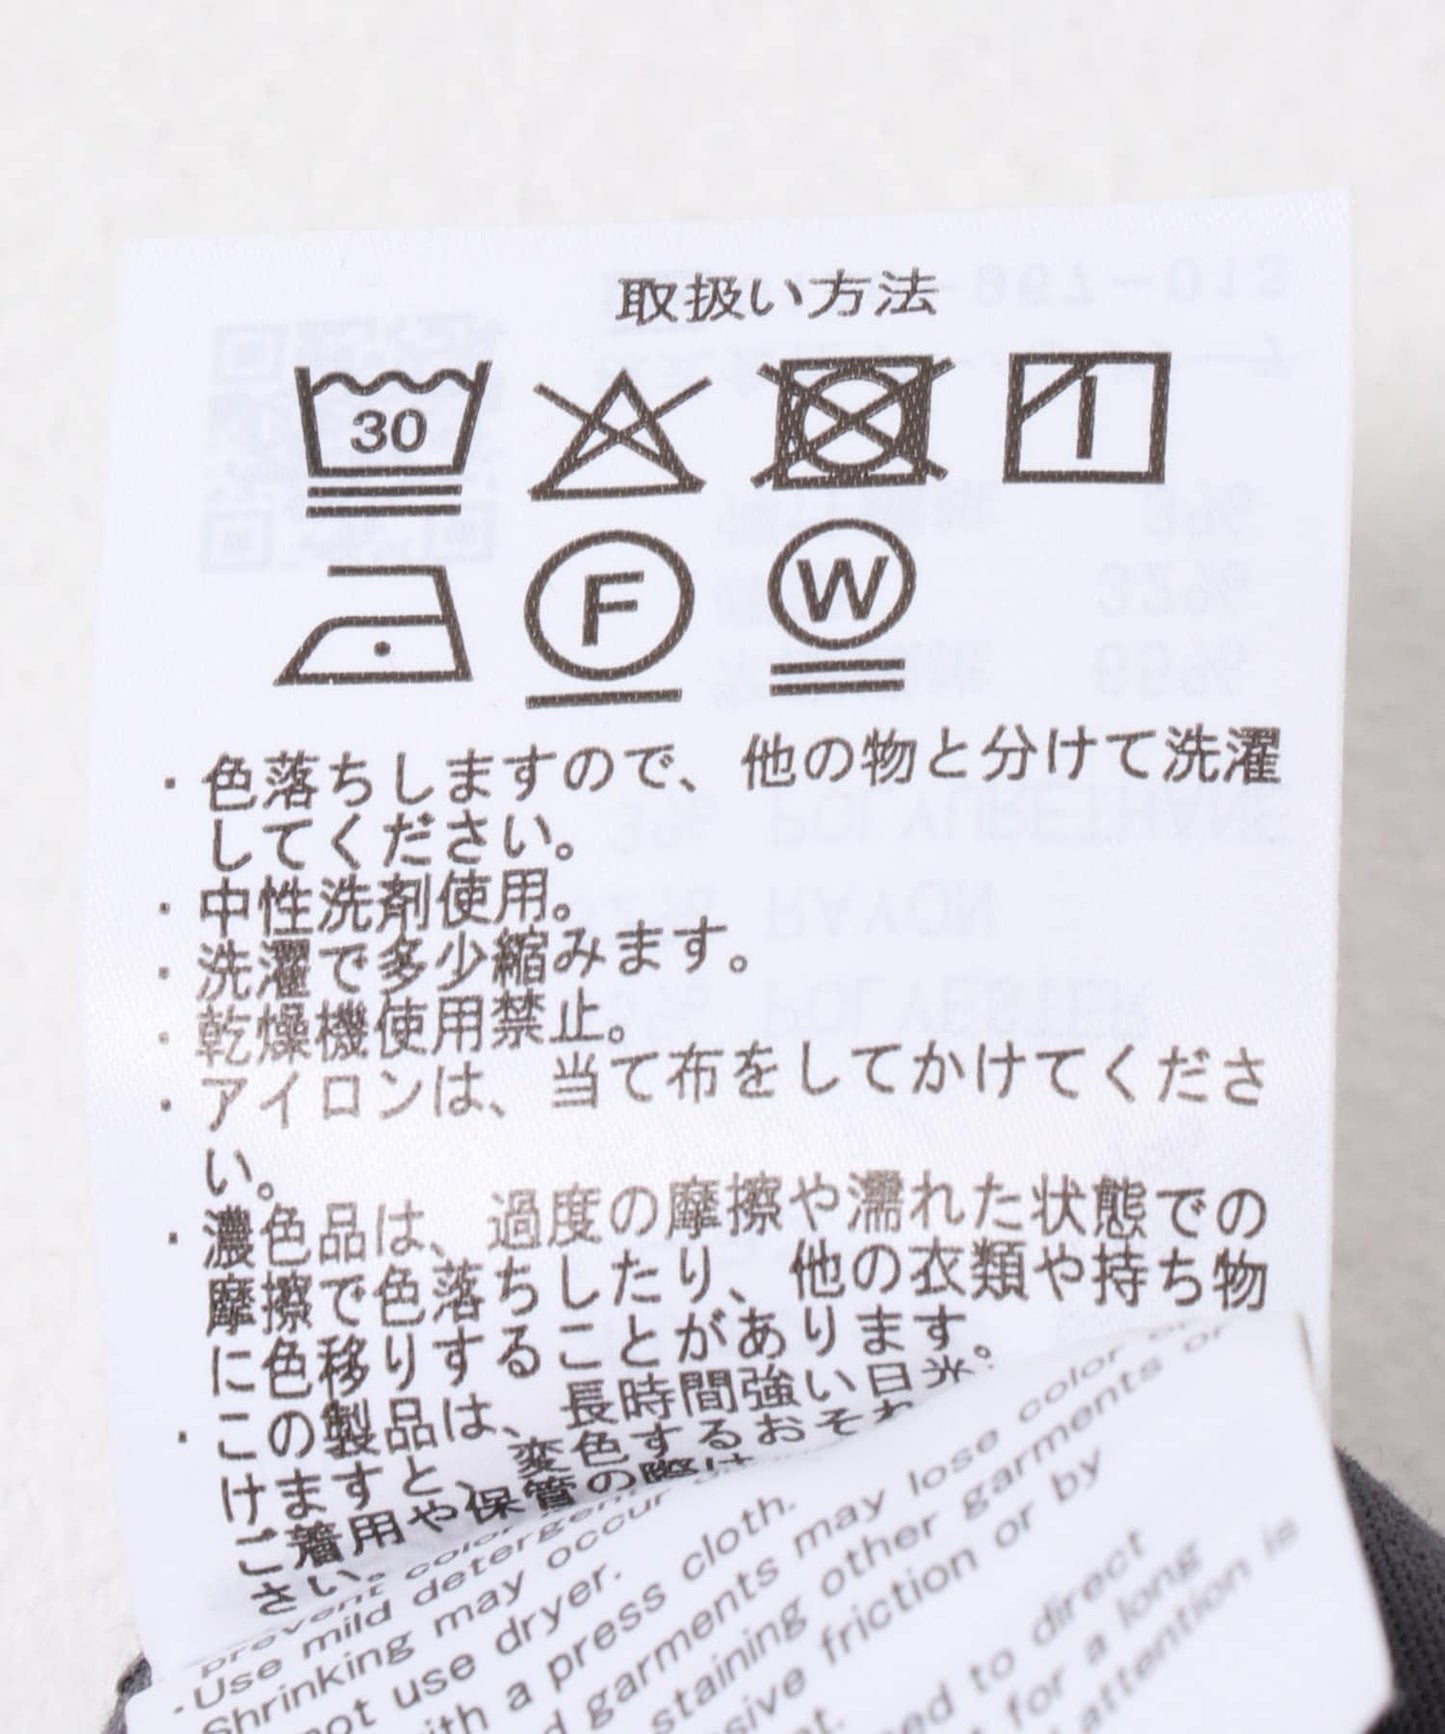 取扱い方法
30
F
W
・色落ちしますので、他の物と分けて洗濯
してください。
・中性洗剤使用。
・洗濯で多少縮みます。
・乾燥機使用禁止。
・アイロンは、当て布をしてかけてくださ
い。
・濃色品は、過度の摩擦や濡れた状態での
摩擦で色落ちしたり、他の衣類や持ち物
に色移りすることがあります。
・この製品は、長時間強い日光
けますと、変色するおそれ
ご着用や保管の際は
さい。
prevent color
・Use mild detergent
Shrinking may occur
not use dryer.
with a press cloth.
garments may lose color
staining other garments or
friction or by
to direct
for a long
attention is